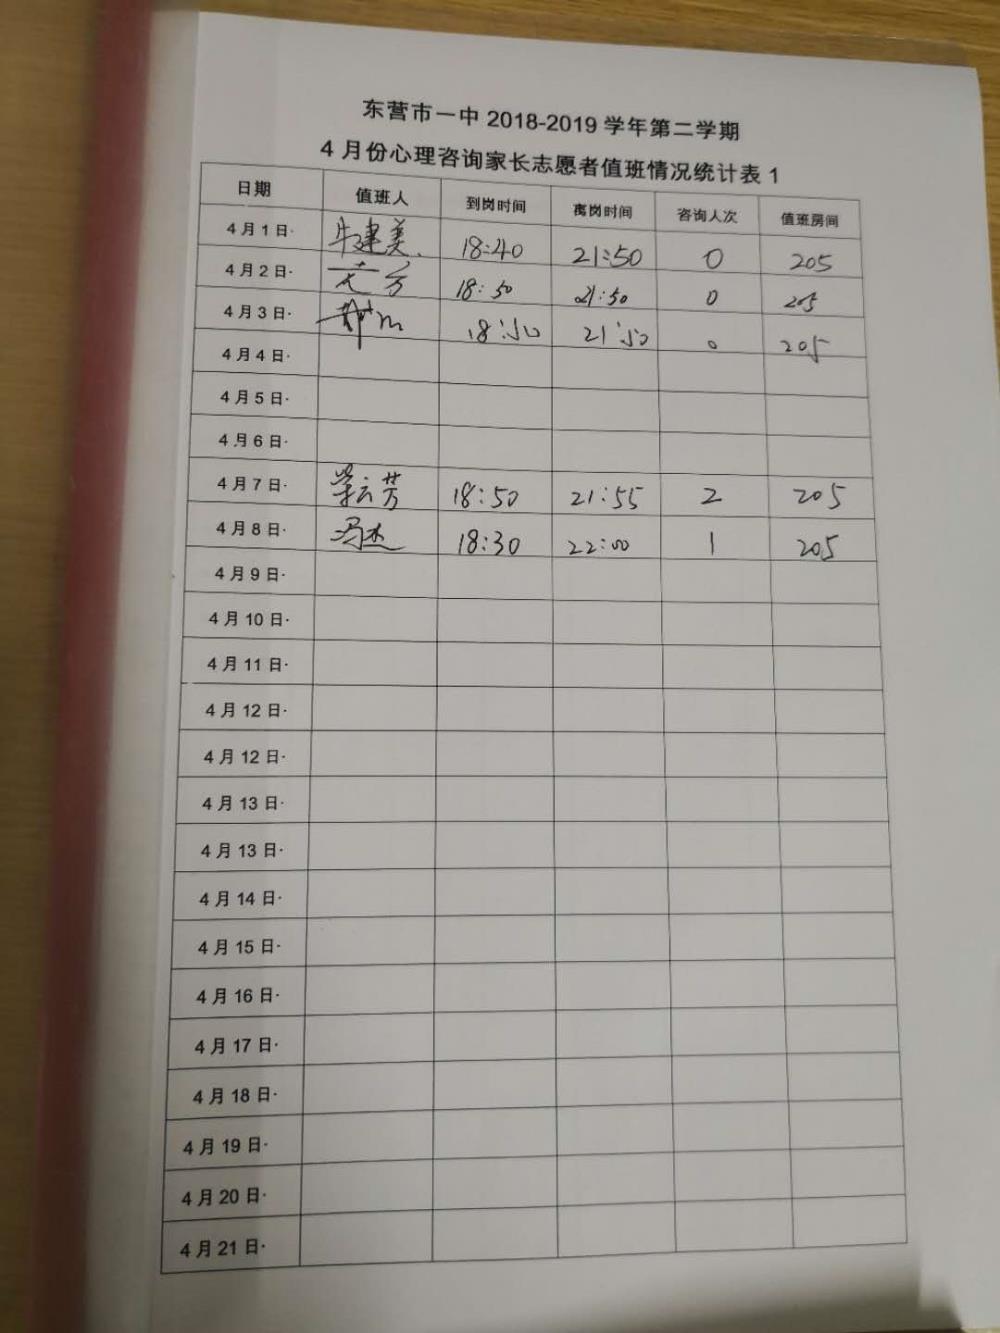 东营市一中 2018-2019 学年第二学期
4 月份心理咨询家长志愿者值班情况统计表 1
日期 值班人 到岗时间 离岗时间 咨询人次 值班房间
4 月 1 日· 牛建美 18:40 21:50 0 205
4 月 2 日· 18:50 21:50 0 205
4 月 3 日· 18:50 21:50 0 205
4 月 4 日·
4 月 5 日·
4 月 6 日·
4 月 7 日· 18:50 21:55 2 205
4 月 8 日· 冯杰 18:30 22:00 1 205
4 月 9 日·
4 月 10 日·
4 月 11 日·
4 月 12 日·
4 月 12 日·
4 月 13 日·
4 月 13 日·
4 月 14 日·
4 月 15 日·
4 月 16 日·
4 月 17 日·
4 月 18 日·
4 月 19 日·
4 月 20 日·
4 月 21 日·